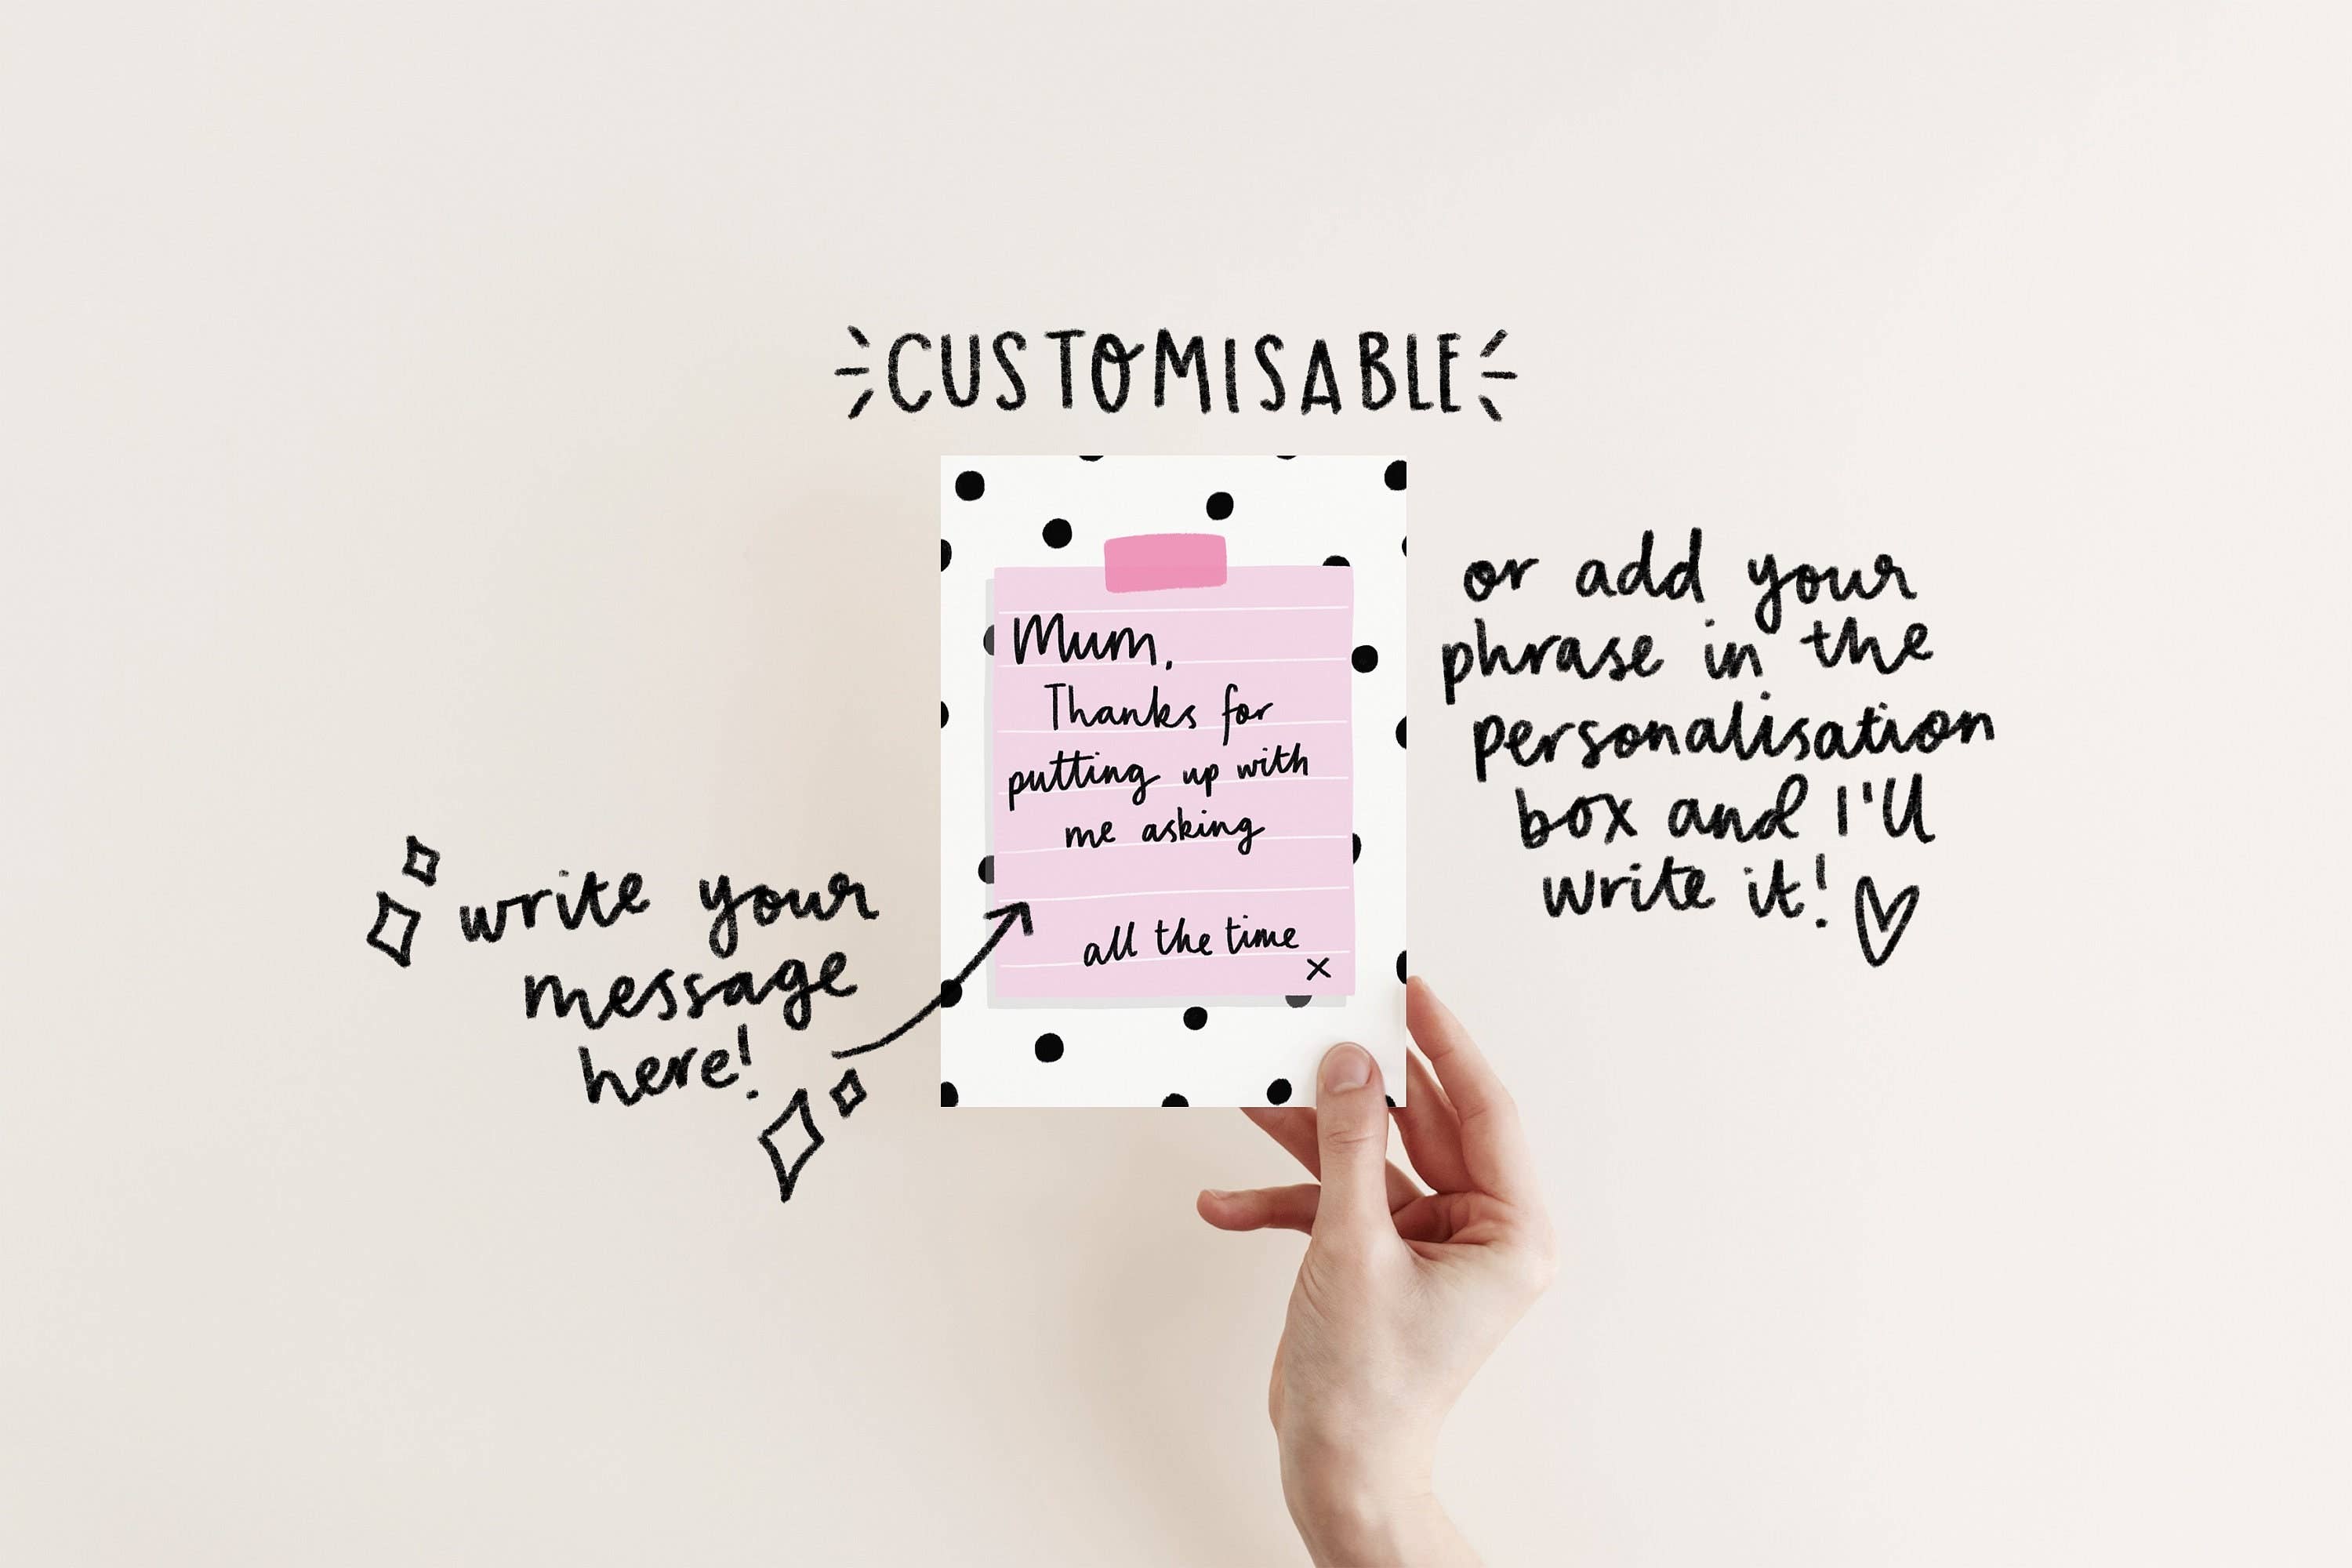 CUSTOMISABLE
Mum,
Thanks for
putting up with
me asking
all the time
x
write your
message
here!
or add your
phrase in the
personalisation
box and I'll
write it!